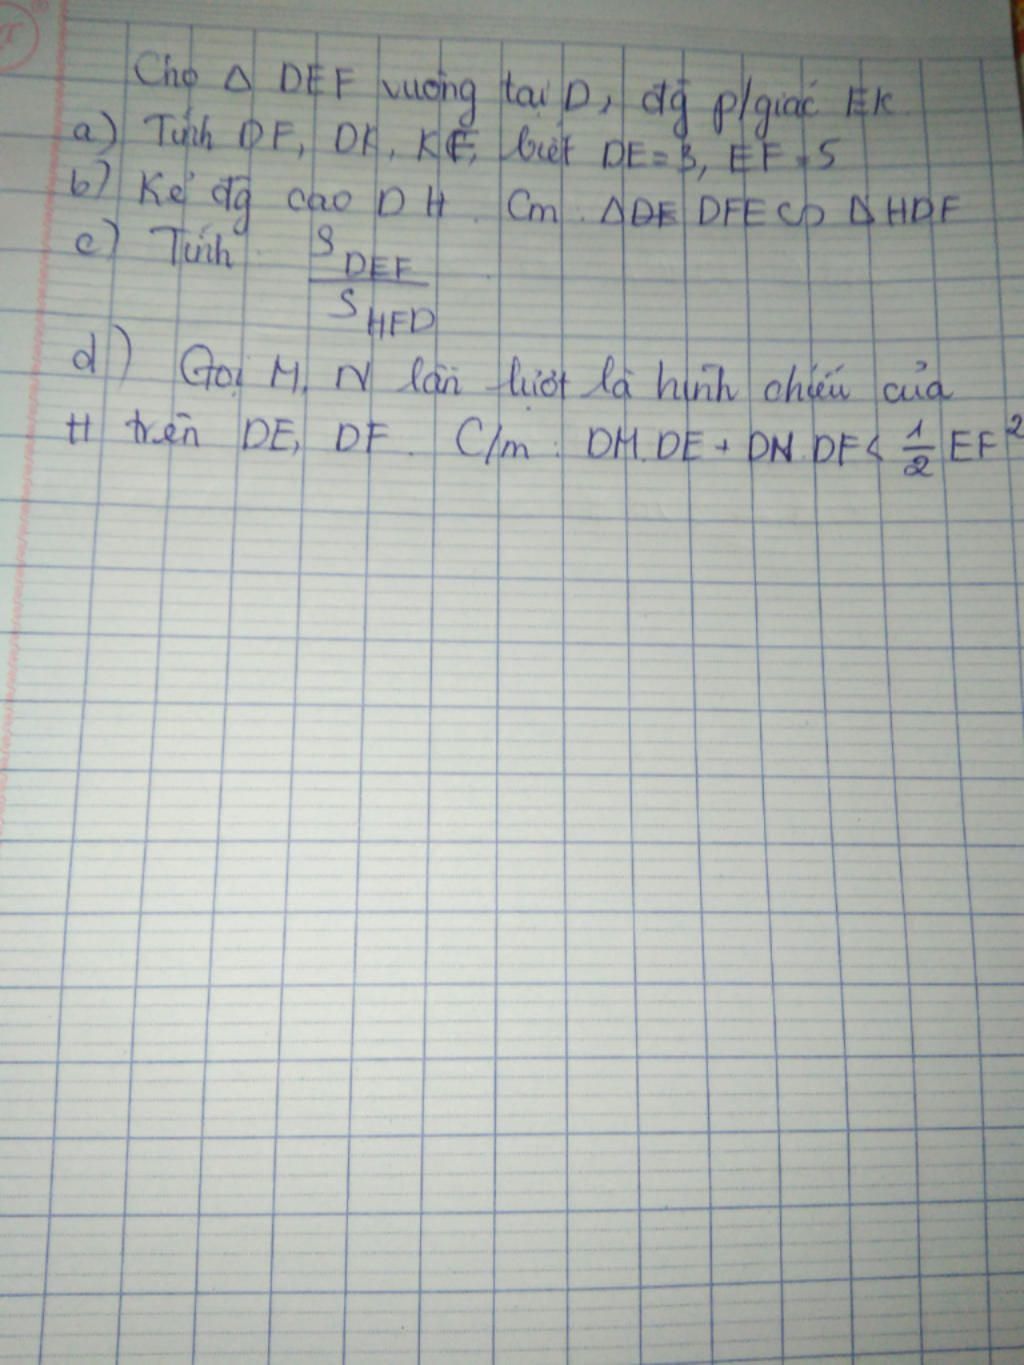 Cho Δ DEF vuông tại D, đg p/giác EK
a) Tính DF, DK, KF, biết DE = 3, EF = 5
b) Kẻ đg cao DH. Cm: ΔDE DFE ∽ Δ HDF
c) Tính S DEF / S HFD
d) Gọi M, N lần lượt là hình chiếu của
H trên DE, DF. C/m: DM.DE + DN.DF < 1/2 EF²